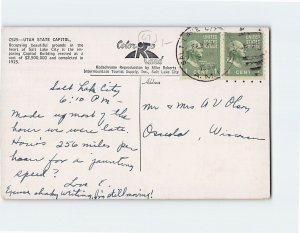 C525—UTAH STATE CAPITOL,
Occupying beautiful grounds in the
heart of Salt Lake City is the im-
posing Capitol Building erected at a
cost of $2,900,000 and completed in
1925.
Color
Card
Kodachrome Reproduction by Mike Roberts
Intermountain Tourist Supply, Inc., Salt Lake City
Address
CENT
Salt Lake City
6:10 P.M—
Made up most of the
hour we were late.
How's 256 miles per
hour for a jaunting
speed?
Love E.
Excuse shaky writing, I'm still moving!
Mr & Mrs A V Olson
Wisconsin